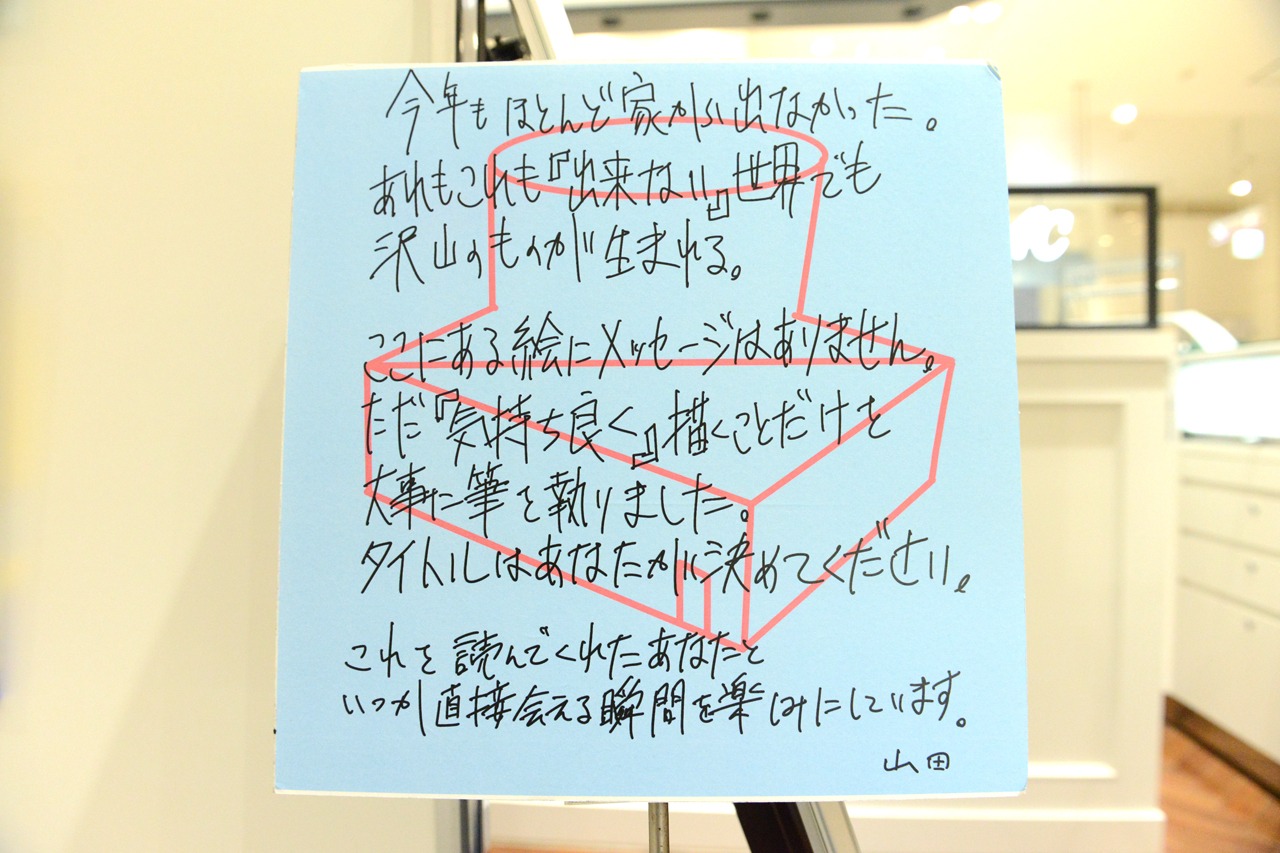 今年もほとんど家から出なかった。
あれもこれも『出来ない』世界でも
沢山のものが生まれる。
ここにある絵にメッセージはありません。
ただ『気持ち良く』描くことだけを
大事に筆を執りました。
タイトルはあなたが決めてください。
これを読んでくれたあなたと
いつか直接会える瞬間を楽しみにしています。
山田